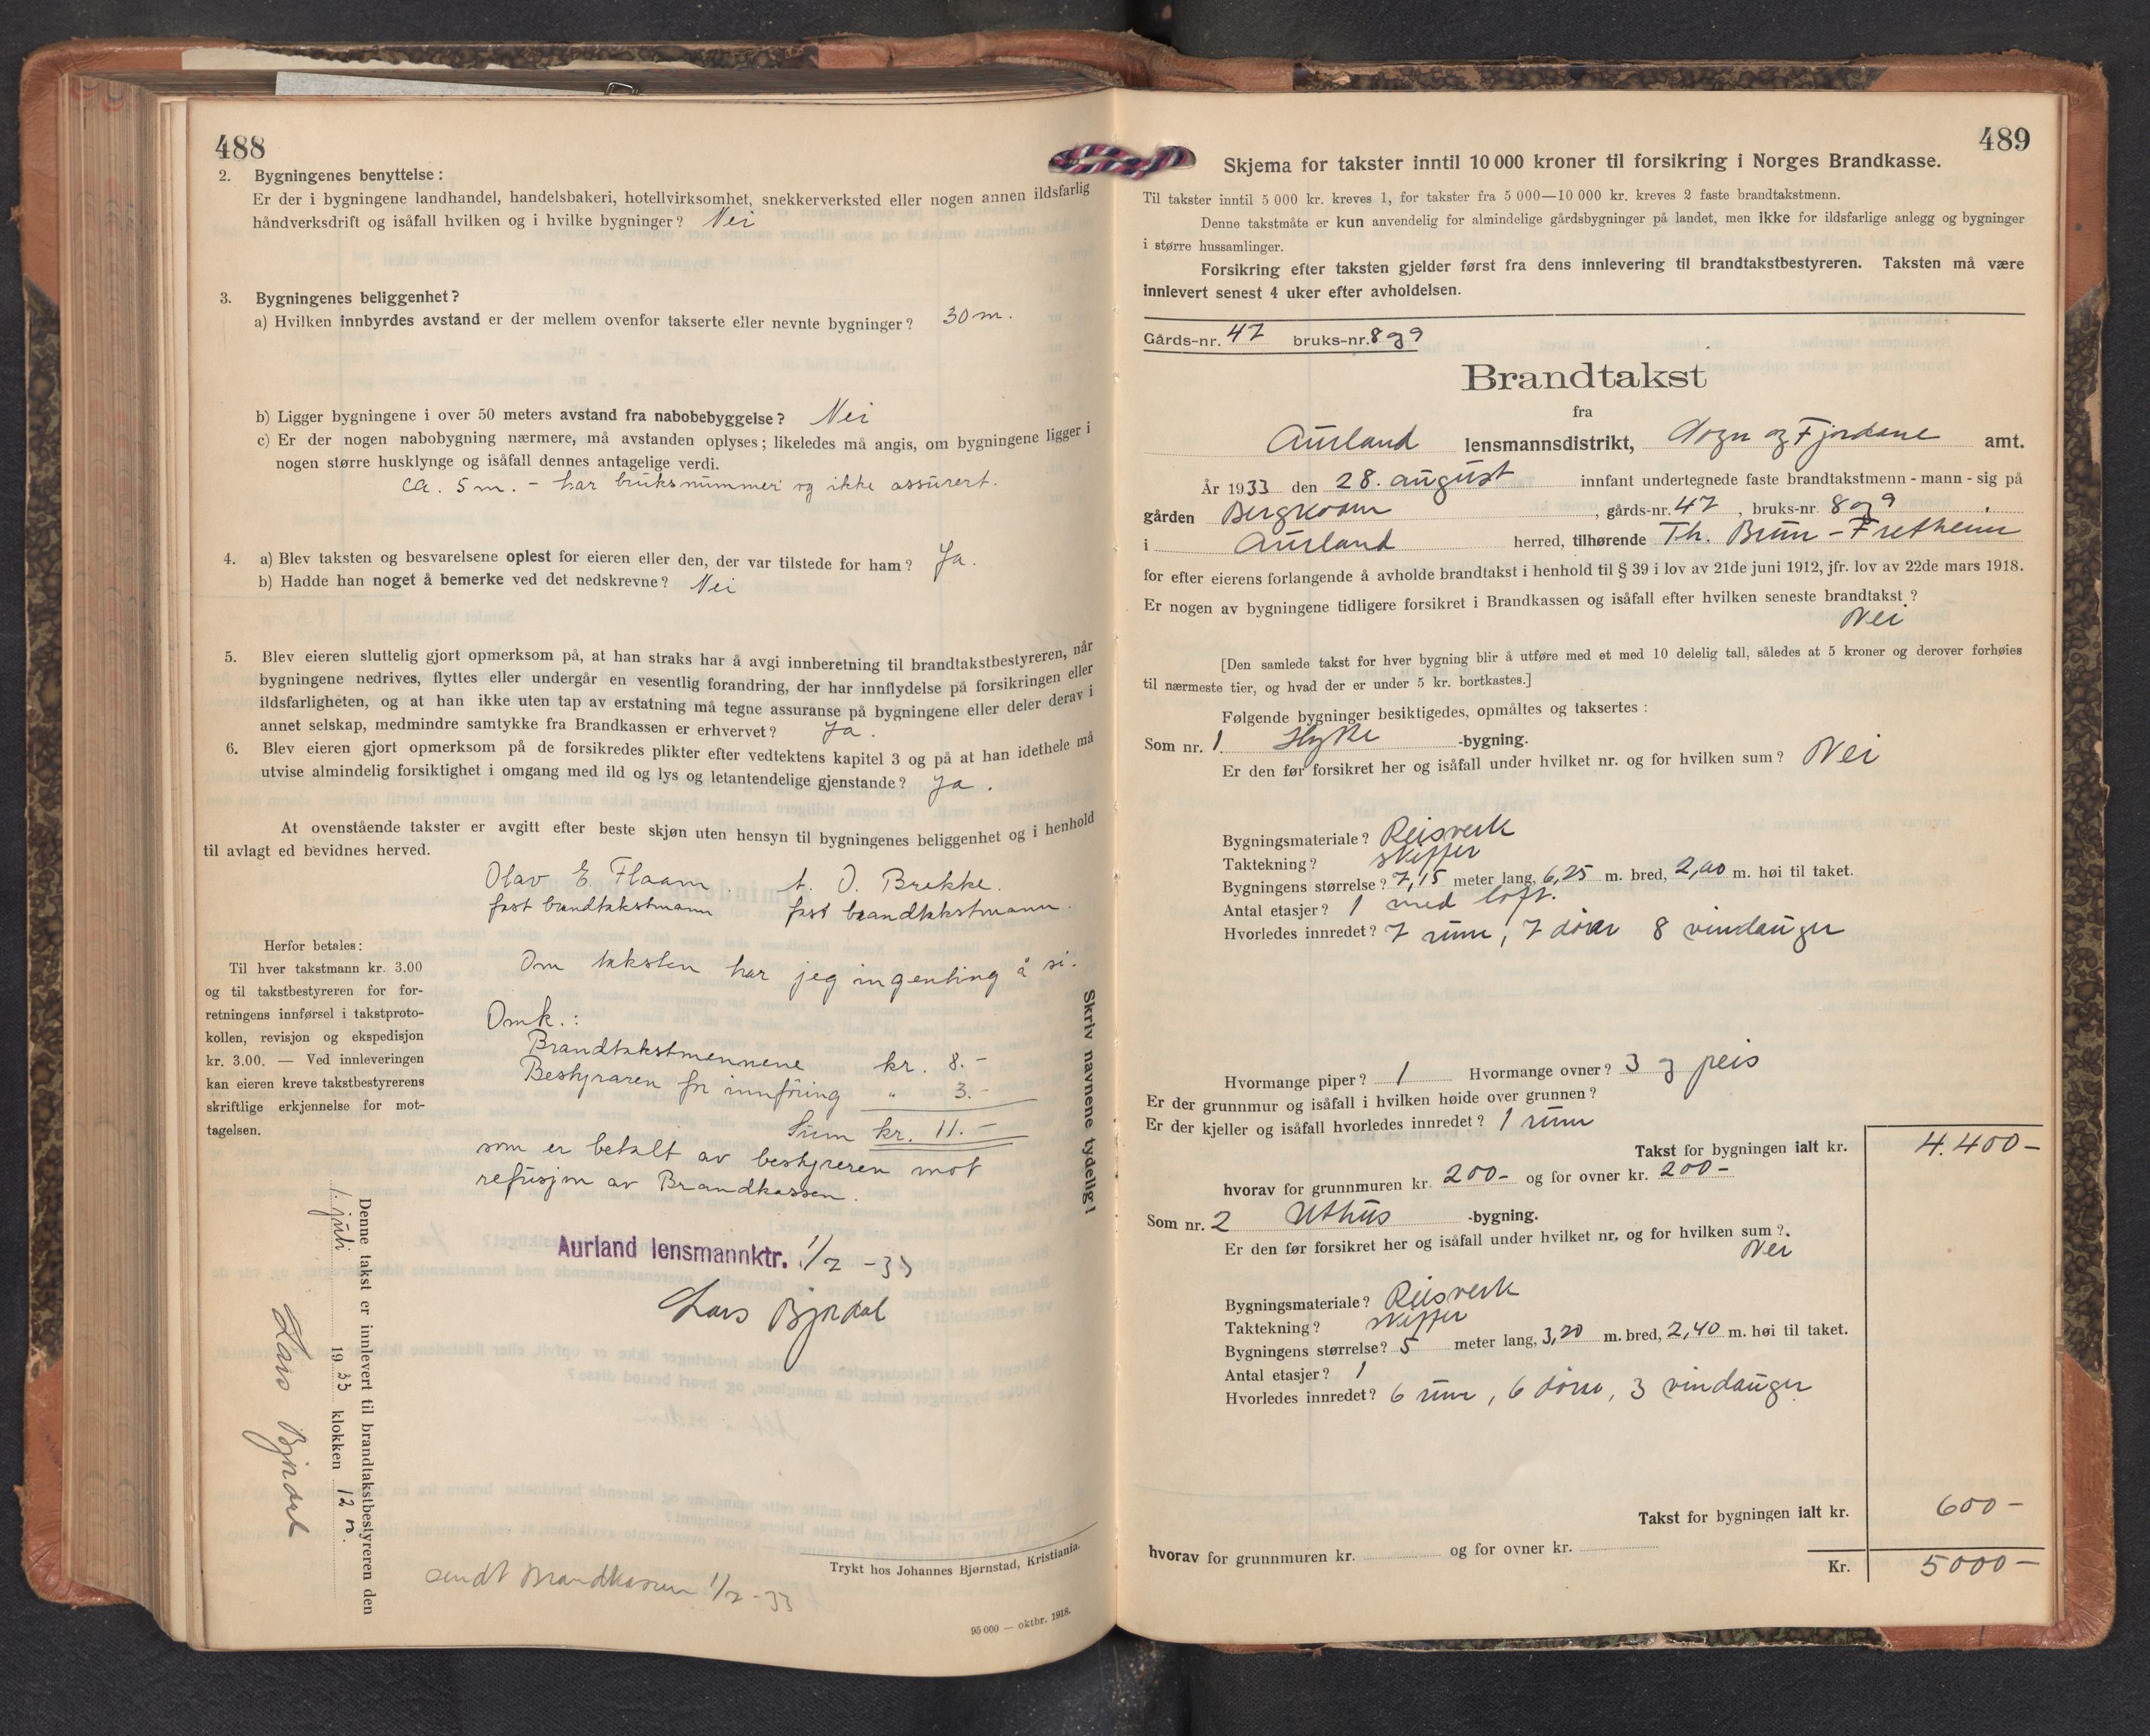 488
2. Bygningenes benyttelse:
Er der i bygningene landhandel, handelsbakeri, hotellvirksomhet, snekkerverksted eller nogen annen ildsfarlig
håndverksdrift og isåfall hvilken og i hvilke bygninger? Nei
3. Bygningenes beliggenhet?
a) Hvilken innbyrdes avstand er der mellem ovenfor takserte eller nevnte bygninger? 30 m.
b) Ligger bygningene i over 50 meters avstand fra nabobebyggelse? Nei
c) Er der nogen nabobygning nærmere, må avstanden oplyses; likeledes må angis, om bygningene ligger i
nogen større husklynge og isåfall dennes antagelige verdi.
ca. 5 m. - har bruksnummer og ikke assurert.
4. a) Blev taksten og besvarelsene oplest for eieren eller den, der var tilstede for ham? Ja.
b) Hadde han noget å bemerke ved det nedskrevne? Nei
5. Blev eieren sluttelig gjort opmerksom på, at han straks har å avgi innberetning til brandtakstbestyreren, når
bygningene nedrives, flyttes eller undergår en vesentlig forandring, der har innflydelse på forsikringen eller
ildsfarligheten, og at han ikke uten tap av erstatning må tegne assuranse på bygningene eller deler derav i
annet selskap, medmindre samtykke fra Brandkassen er erhvervet? Ja.
6. Blev eieren gjort opmerksom på de forsikredes plikter efter vedtektens kapitel 3 og på at han idethele må
utvise almindelig forsiktighet i omgang med ild og lys og letantendelige gjenstande? Ja.
At ovenstående takster er avgitt efter beste skjøn uten hensyn til bygningenes beliggenhet og i henhold
til avlagt ed bevidnes herved.
Olav E. Flaam. A. O. Brekke.
fast brandtakstmann fast brandtakstmann.
Herfor betales:
Til hver takstmann kr. 3.00
og til takstbestyreren for for-
retningens innførsel i takstproto-
kollen, revisjon og ekspedisjon
kr. 3.00. — Ved innleveringen
kan eieren kreve takstbestyrerens
skriftlige erkjennelse for mot-
tagelsen.
Om taksten har jeg ingenting å si.
Omk.:
Brandtakstmennene kr. 8.-
Bestyraren for innföring " 3.-
Sum kr. 11.-
som er betalt av bestyreren mot
refusjon av Brandkassen.
Aurland lensmannktr. 1/7 - 33
Lars Bjørdal
Skriv navnene tydelig!
Denne takst er innlevert til brandtakstbestyreren den
1. juli 1933 klokken 12
Lars Bjørdal
sendt Brandkassen 1/7 - 33
Trykt hos Johannes Bjørnstad, Kristiania.
95 000 — oktbr. 1918.
489
Skjema for takster inntil 10 000 kroner til forsikring i Norges Brandkasse.
Til takster inntil 5 000 kr. kreves 1, for takster fra 5 000—10 000 kr. kreves 2 faste brandtakstmenn.
Denne takstmåte er kun anvendelig for almindelige gårdsbygninger på landet, men ikke for ildsfarlige anlegg og bygninger
i større hussamlinger.
Forsikring efter taksten gjelder først fra dens innlevering til brandtakstbestyreren. Taksten må være
innlevert senest 4 uker efter avholdelsen.
Gårds-nr. 47 bruks-nr. 8 og 9
Brandtakst
fra
Aurland lensmannsdistrikt, Sogn og Fjordane amt.
År 1933 den 28. august innfant undertegnede faste brandtakstmenn - mann - sig på
gården Bergkvam, gårds-nr. 47, bruks-nr. 8 og 9
i Aurland herred, tilhørende Th. Brun - Fretheim
for efter eierens forlangende å avholde brandtakst i henhold til § 39 i lov av 21de juni 1912, jfr. lov av 22de mars 1918.
Er nogen av bygningene tidligere forsikret i Brandkassen og isåfall efter hvilken seneste brandtakst?
Nei
[Den samlede takst for hver bygning blir å utføre med et med 10 delelig tall, således at 5 kroner og derover forhøies
til nærmeste tier, og hvad der er under 5 kr. bortkastes.]
Følgende bygninger besiktigedes, opmåltes og taksertes:
Som nr. 1 Hytte -bygning.
Er den før forsikret her og isåfall under hvilket nr. og for hvilken sum? Nei
Bygningsmateriale? Reisverk
Taktekning? skiffer
Bygningens størrelse? 7,15 meter lang, 6,25 m. bred, 2,00 m. høi til taket.
Antal etasjer? 1 med loft.
Hvorledes innredet? 7 rum, 7 dörer 8 vindauger
Hvormange piper? 1 Hvormange ovner? 3 og peis
Er der grunnmur og isåfall i hvilken høide over grunnen?
Er der kjeller og isåfall hvorledes innredet? 1 rum
Takst for bygningen ialt kr. 4.400-
hvorav for grunnmuren kr. 200- og for ovner kr. 200-
Som nr. 2 Uthus -bygning.
Er den før forsikret her og isåfall under hvilket nr. og for hvilken sum?
Nei
Bygningsmateriale? Reisverk
Taktekning? skiffer
Bygningens størrelse? 5 meter lang, 3,20 m. bred, 2,40 m. høi til taket.
Antal etasjer? 1
Hvorledes innredet? 6 rum, 6 dörer, 3 vindauger
Takst for bygningen ialt kr. 600-
hvorav for grunnmuren kr. og for ovner kr.
Kr. 5000-